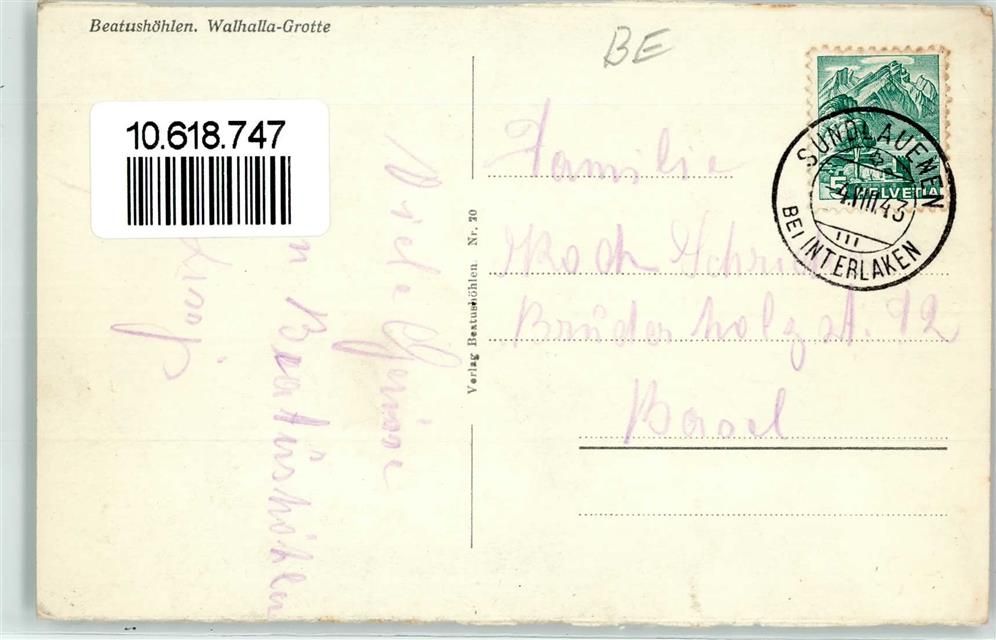 Beatushöhlen. Walhalla-Grotte
BE
10.618.747
Viele Grüsse
Beatushöhlen
Verlag Beatushöhlen. Nr. 20
5 HELVETIA
SUNDLAUENEN
4.VIII.43
BEI INTERLAKEN
Familie
Koch
Bruderholzst. 92
Basel